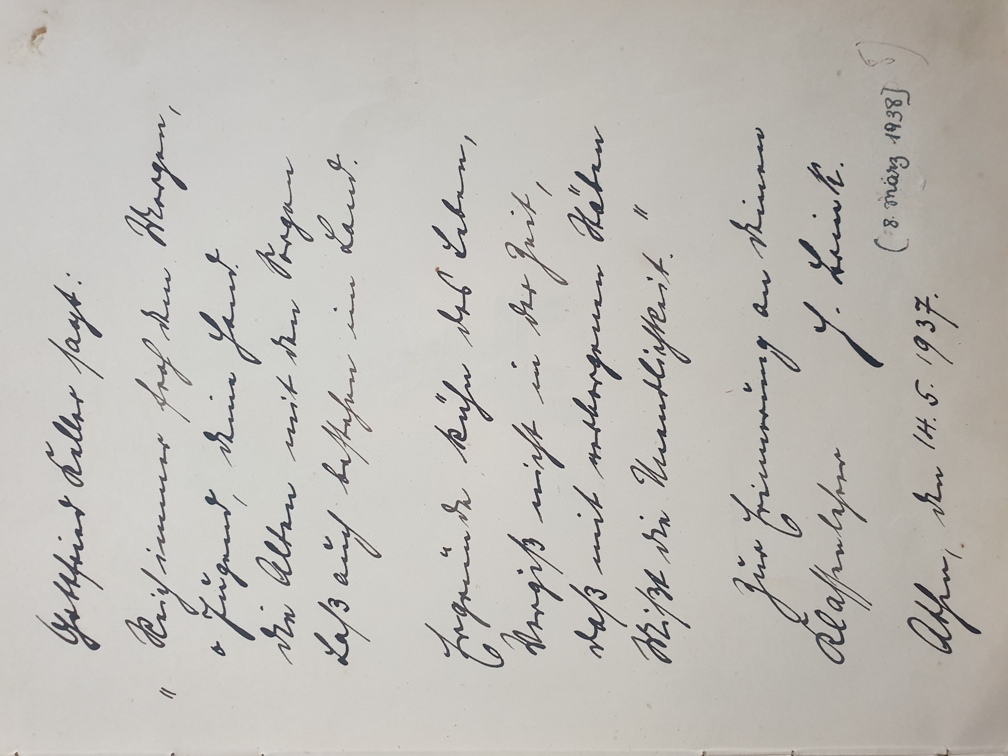 Gottfried Keller sagt:
„Reich immer froh dem Morgen,
o Jugend, deine Hand.
die Alten mit den Sorgen
Laß auch bestehen im Land.
Ergründe kühn das Leben,
Vergiß nicht in der Zeit,
daß mit verborgenen Stäben
Mißt die Unendlichkeit."
Zur Erinnerung an deinen
Klassenlehrer H. Brink.
(8. März 1938)
Athen, den 14. 5. 1937.